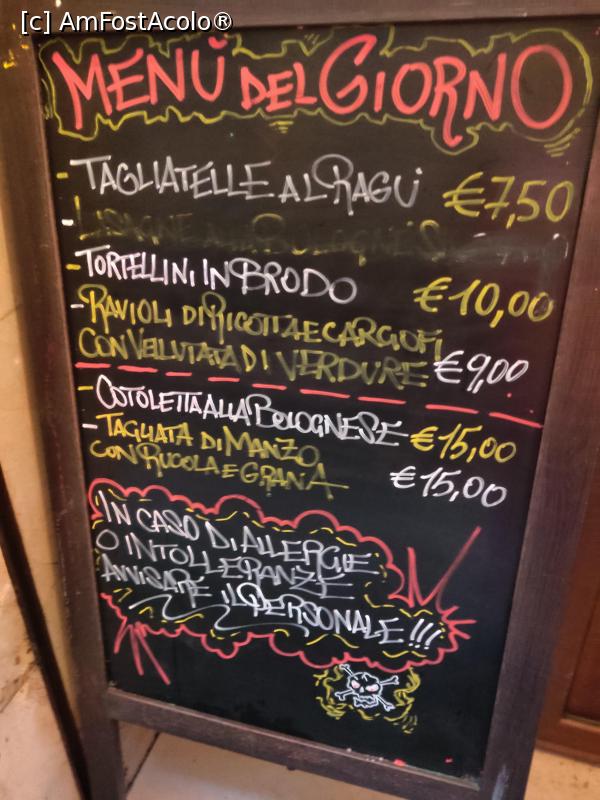 [c] AmFostAcolo®
MENÙ DEL GIORNO
- TAGLIATELLE AL RAGÙ €7,50
- LASAGNE ALLA BOLOGNESE
- TORTELLINI IN BRODO €10,00
- RAVIOLI DI RICOTTA E CARCIOFI
CON VELLUTATA DI VERDURE €9,00
- COTOLETTA ALLA BOLOGNESE €15,00
- TAGLIATA DI MANZO
CON RUCOLA E GRANA €15,00
IN CASO DI ALLERGIE
O INTOLLERANZE
AVVISARE IL PERSONALE!!!